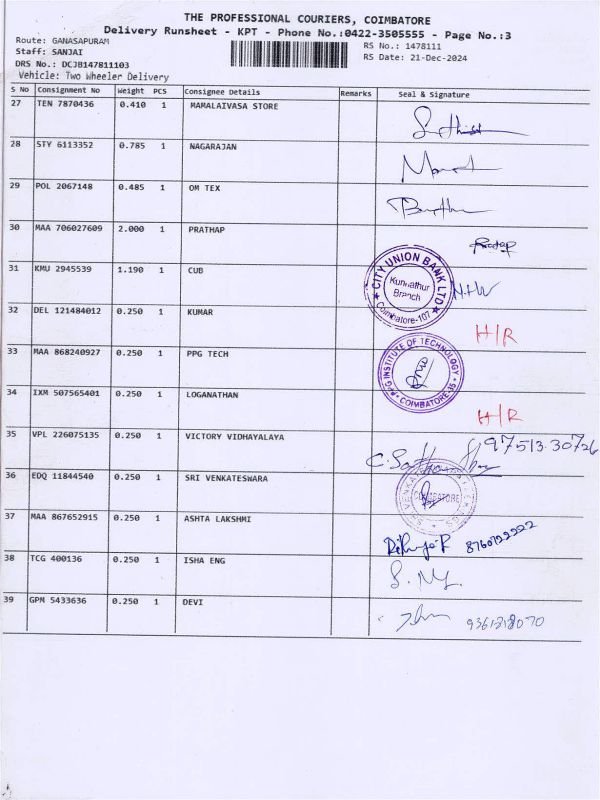 THE PROFESSIONAL COURIERS, COIMBATORE
Delivery Runsheet - KPT - Phone No.:0422-3505555 - Page No.:3
Route: GANASAPURAM
RS No.: 1478111
Staff: SANJAI
RS Date: 21-Dec-2024
DRS No.: DCJB147811103
Vehicle: Two Wheeler Delivery
S No Consignment No Weight PCS Consignee Details Remarks Seal & Signature
27 TEN 7870436 0.410 1 MAMALAIVASA STORE
28 STY 6113352 0.785 1 NAGARAJAN
29 POL 2067148 0.485 1 OM TEX
30 MAA 706027609 2.000 1 PRATHAP
31 KMU 2945539 1.190 1 CUB
CITY UNION BANK LTD
Kunnathur
Branch
Coimbatore-107
32 DEL 121484012 0.250 1 KUMAR H/R
33 MAA 868240927 0.250 1 PPG TECH
PPG INSTITUTE OF TECHNOLOGY
COIMBATORE-35
34 IXM 507565401 0.250 1 LOGANATHAN H/R
35 VPL 226075135 0.250 1 VICTORY VIDHAYALAYA 97513.30726
36 EDQ 11844540 0.250 1 SRI VENKATESWARA
COIMBATORE
37 MAA 867652915 0.250 1 ASHTA LAKSHMI
38 TCG 400136 0.250 1 ISHA ENG
39 GPM 5433636 0.250 1 DEVI